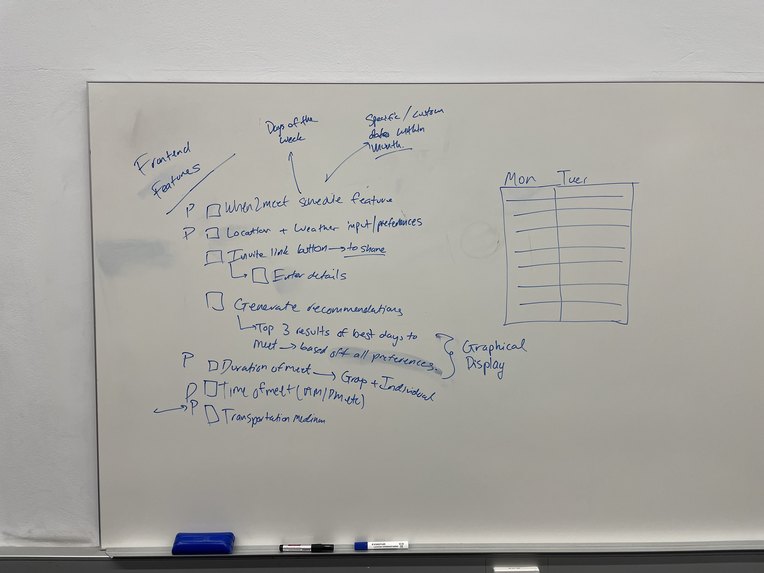 Frontend
Features
Days of the
week
Specific/custom
dates within
month.
P When2meet schedule feature
P Location + Weather input/preferences
Invite link button → to share
↳ Enter details
Generate recommendations
↳ Top 3 results of best days to
meet → based off all preferences.
Graphical
Display
P Duration of meet → Group + Individual
P Time of meet (AM/PM etc)
P Transportation medium
Mon Tues